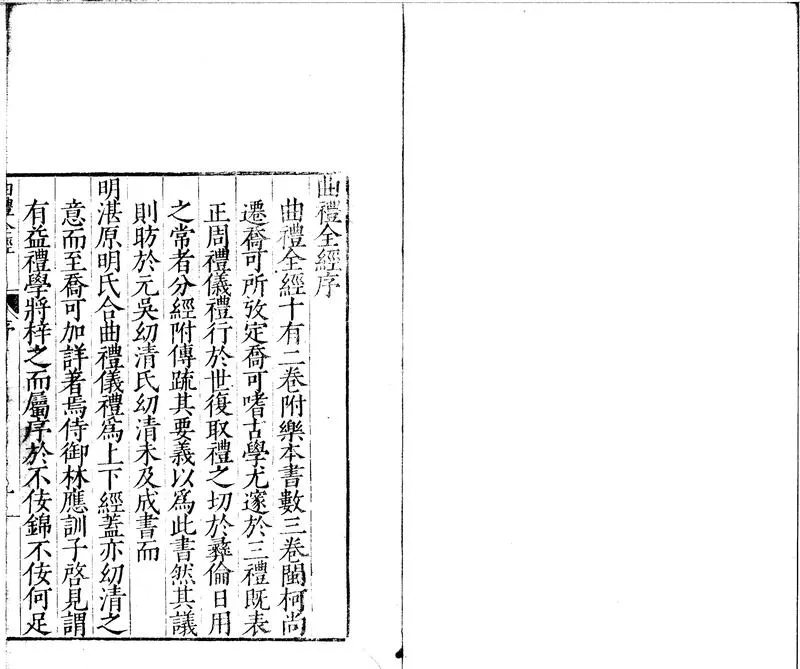 曲禮全經序
曲禮全經十有二卷附樂本書數三卷閩柯尚
遷喬可所攷定喬可嗜古學尤邃於三禮既表
正周禮儀禮行於世復取禮之切於彞倫日用
之常者分經附傳疏其要義以爲此書然其議
則昉於元吳幼清氏幼清未及成書而
明湛原明氏合曲禮儀禮爲上下經蓋亦幼清之
意而至喬可加詳著焉侍御林應訓子啓見謂
有益禮學將梓之而屬序於不佞錦不佞何足
曲禮全經 序